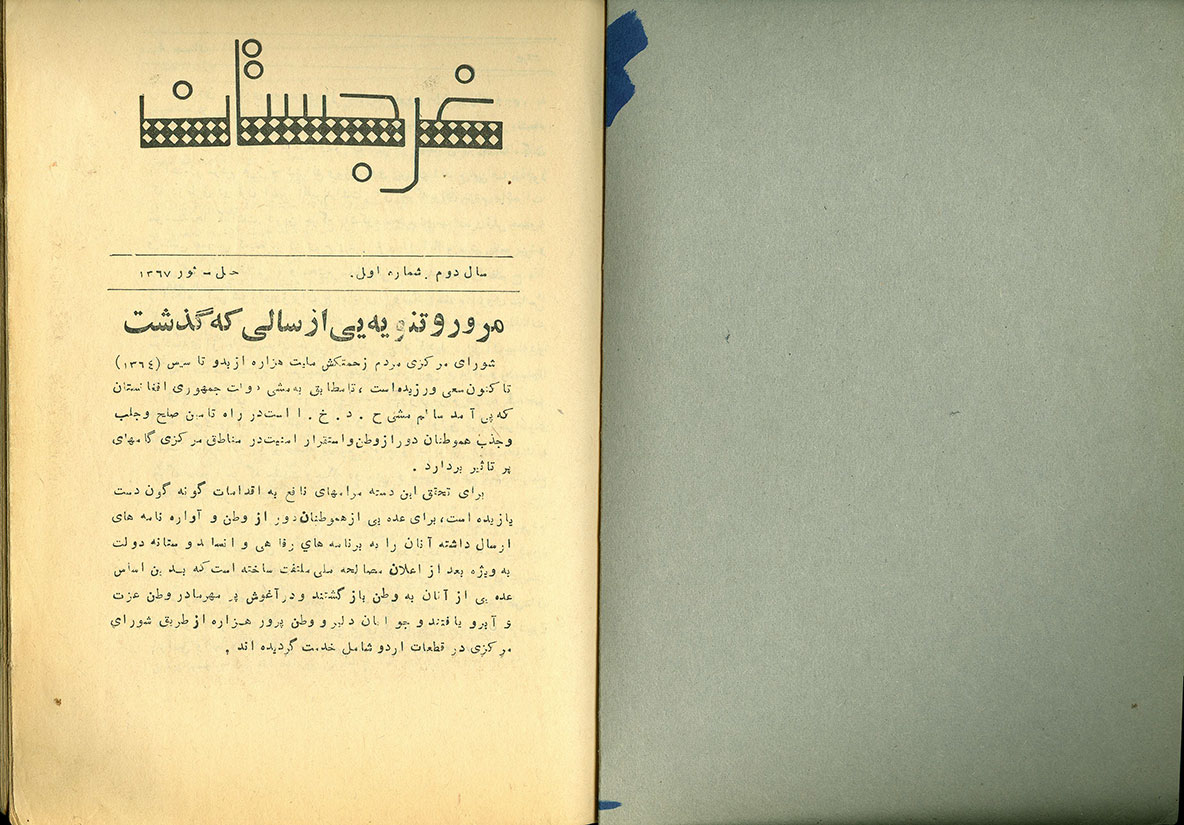 غرجستان
سال دوم . شماره اولی . حمل - ثور ۱۳۶۷
مرور و تنویه یی از سالی که گذشت
شورای مرکزی مردم زحمتکش ملیت هزاره از بدو تاسیس (۱۳۶٤)
تا کنون سعی ورزیده است ، تا مطابق به مشی دولت جمهوری افغانستان
که پی آمد سالم مشی ح . د . خ . ا است در راه تامین صلح و جلب
و جذب هموطنان دور از وطن و استقرار امنیت در مناطق مرکزی گامهای
پر تاثیر بردارد .
برای تحقق این دسته مرامهای نافع به اقدامات گونه گون دست
یازیده است ، برای عده یی از هموطنان دور از وطن و آواره نامه های
ارسال داشته آنان را به برنامه های رفاهی و انساندوستانه دولت
به ویژه بعد از اعلان مصالحه ملی ملتفت ساخته است که بدین اساس
عده یی از آنان به وطن باز گشتند و در آغوش پر مهر مادر وطن عزت
و آبرو یافتند و جوانان دلیر و وطن پرور هزاره از طریق شورای
مرکزی در قطعات اردو شامل خدمت گردیده اند .